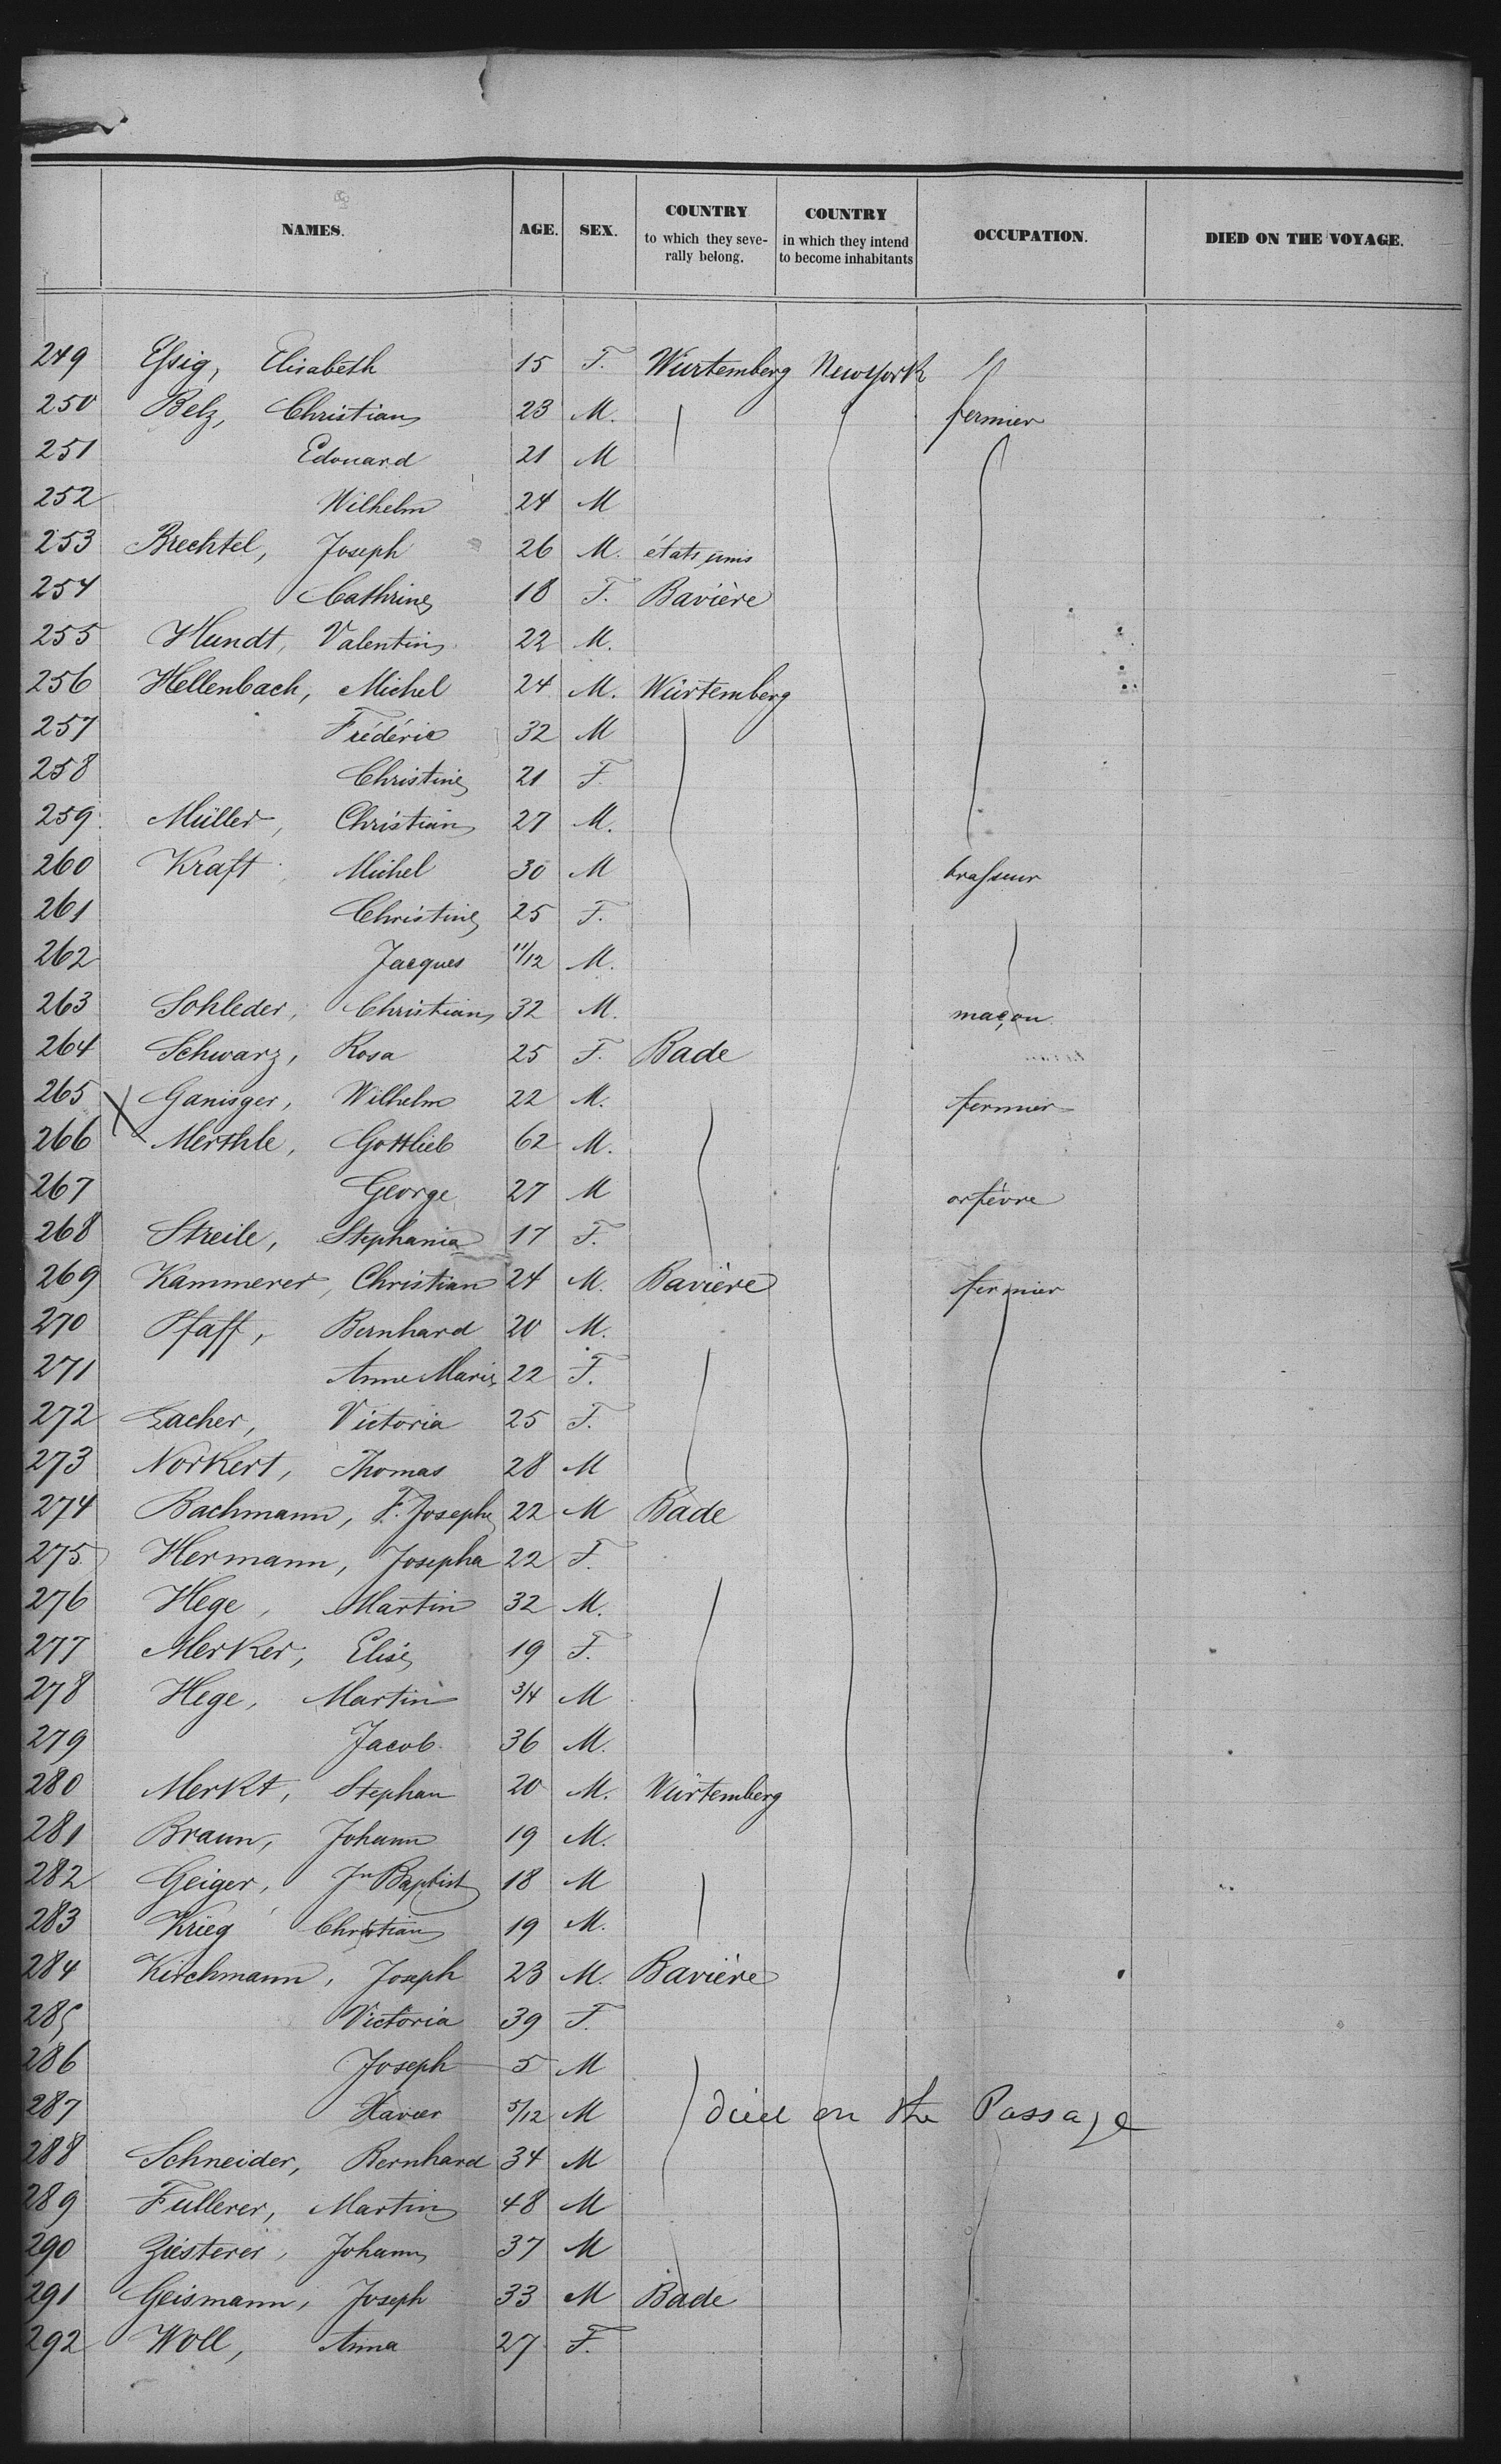 NAMES. AGE. SEX. COUNTRY to which they seve- rally belong. COUNTRY in which they intend to become inhabitants OCCUPATION. DIED ON THE VOYAGE.
249 Essig, Elisabeth 15 F. Wurtemberg Newyork
250 Belz, Christian 23 M. fermier
251 Edouard 21 M
252 Wilhelm 24 M
253 Brechtel, Joseph 26 M. états unis
254 Cathrine 18 F. Bavière
255 Hundt, Valentin 22 M.
256 Hellenbach, Michel 24 M. Würtemberg
257 Frédéric 32 M
258 Christine 21 F
259 Müller, Christian 27 M.
260 Kraft, Michel 30 M brasseur
261 Christine 25 F.
262 Jacques 11/12 M.
263 Sohleder, Christian 32 M. maçon
264 Schwarz, Rosa 25 F. Bade
265 Ganisger, Wilhelm 22 M. fermier
266 Merthle, Gottlieb 62 M.
267 George 27 M orfèvre
268 Streile, Stephania 17 F.
269 Kammerer, Christian 24 M. Bavière fermier
270 Pfaff, Bernhard 20 M.
271 Anne Marie 22 F.
272 Lacher, Victoria 25 F.
273 Norkert, Thomas 28 M
274 Bachmann, F. Joseph 22 M Bade
275 Hermann, Josepha 22 F.
276 Hege, Martin 32 M.
277 Merker, Elise 19 F.
278 Hege, Martin 3/4 M
279 Jacob 36 M.
280 Merkt, Stephan 20 M. Würtemberg
281 Braun, Johann 19 M.
282 Geiger, Jn Baptist 18 M
283 Krieg Christian 19 M.
284 Kirchmann, Joseph 23 M. Bavière
285 Victoria 39 F.
286 Joseph 5 M
287 Xavier 5/12 M died on the Passage
288 Schneider, Bernhard 34 M
289 Fullerer, Martin 48 M
290 Ziesterer, Johann 37 M
291 Geismann, Joseph 33 M Bade
292 Woll, Anna 27 F.